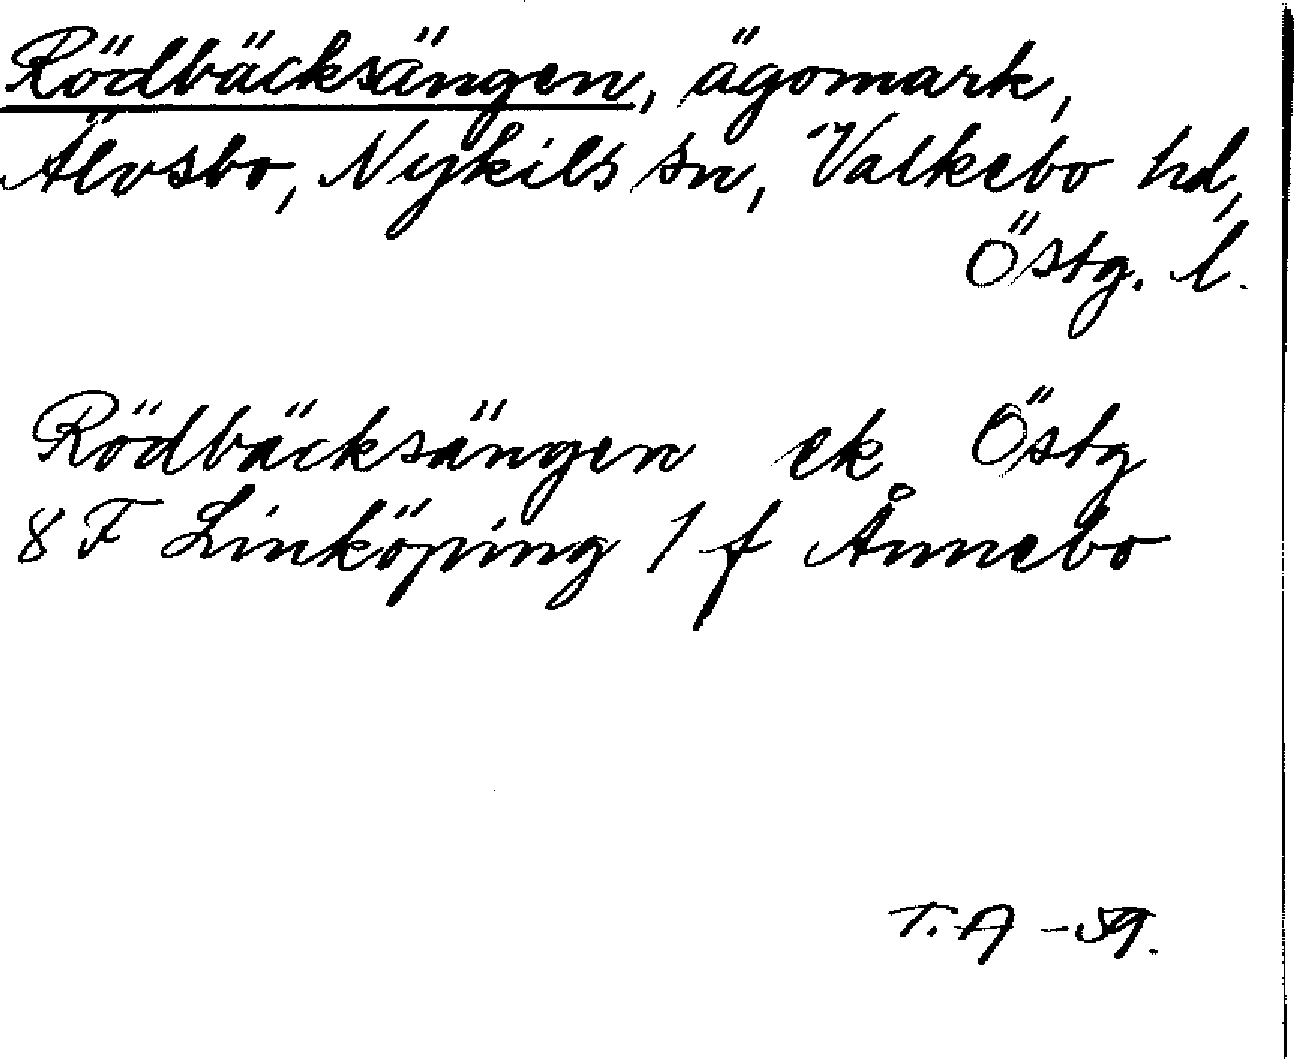 Rödbäcksängen, ägomark,
Älvsbo, Nykils sn, Valkebo hd,
Östg. l.
Rödbäcksängen ek Östg
8 F Linköping 1 f Ånnebo
T. A -59.